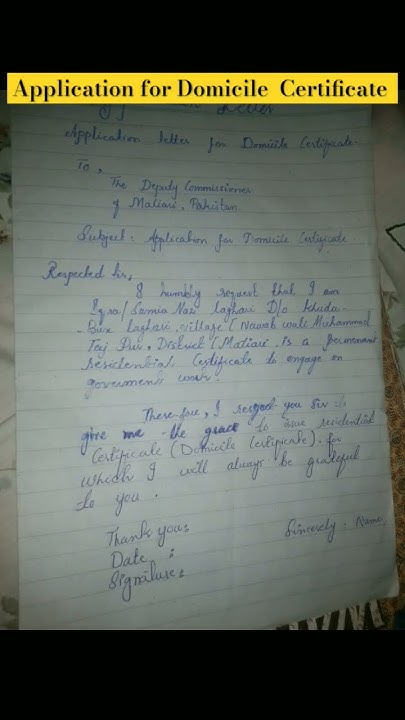 Application for Domicile Certificate
Letter
Application letter for Domicile Certificate.
To,
The Deputy Commissioner
of Matiari, Pakistan
Subject: Application for Domicile Certificate
Respected Sir,
I humbly request that I am
Iqra/Samia Naz Laghari D/o Khuda
Bux Laghari, village (Nawab wali Muhammad
Taj Pur, District (Matiari is a permanent
residential Certificate to engage on
government work.
There-fore, I you Sir to
give me the grace to issue residential
Certificate (Domicile Certificate). for
which I will always be grateful
to you.
Thank you:
Sincerely: Name,
Date :
Signature: